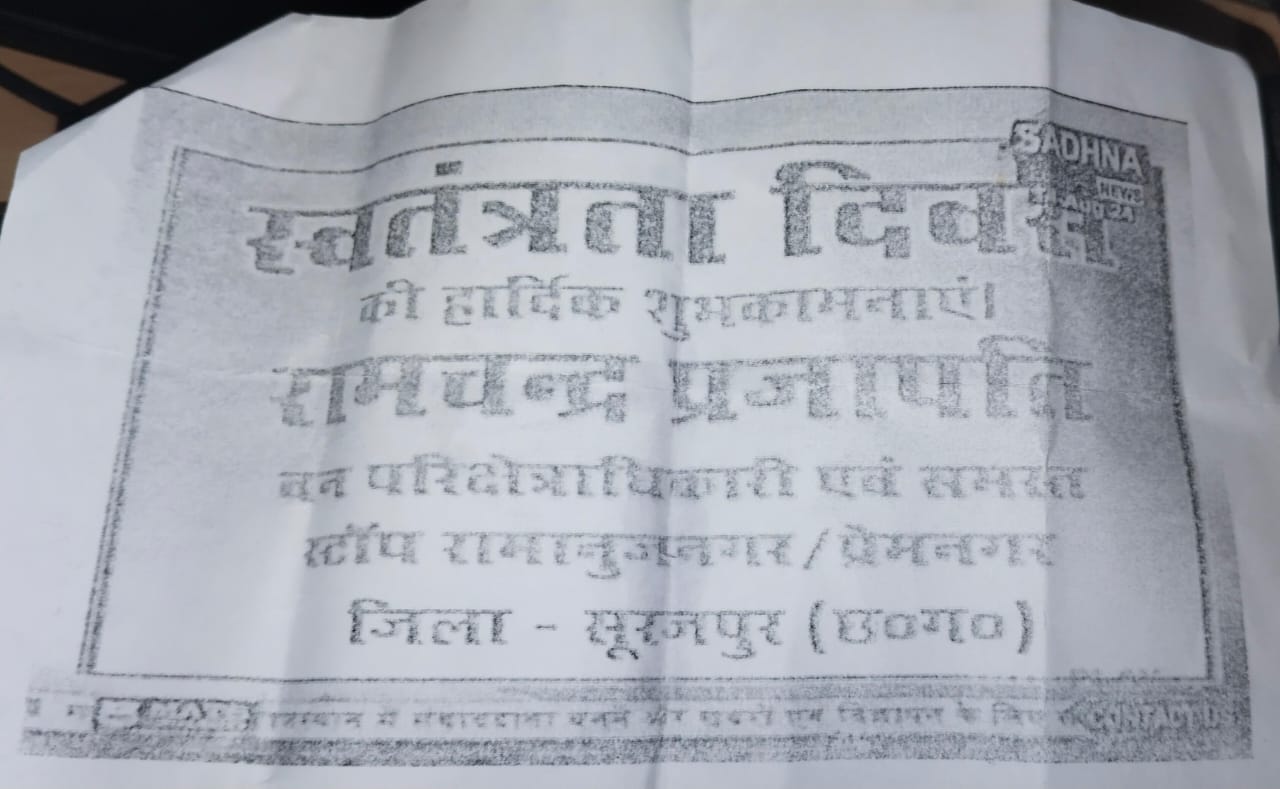 SADHNA
NEWS
Aug 24
स्वतंत्रता दिवस
की हार्दिक शुभकामनाएं।
रामचन्द्र प्रजापति
वन परिक्षेत्राधिकारी एवं समस्त
स्टॉप रामानुजनगर / प्रेमनगर
जिला - सूरजपुर (छ०ग०)
में संवाददाता बनने और एवं विज्ञापन के लिए CONTACT US